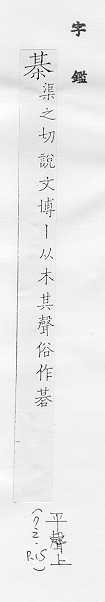 字鑑
棊渠之切說文博丨从木其聲俗作碁
平聲上
(7之.P.15)